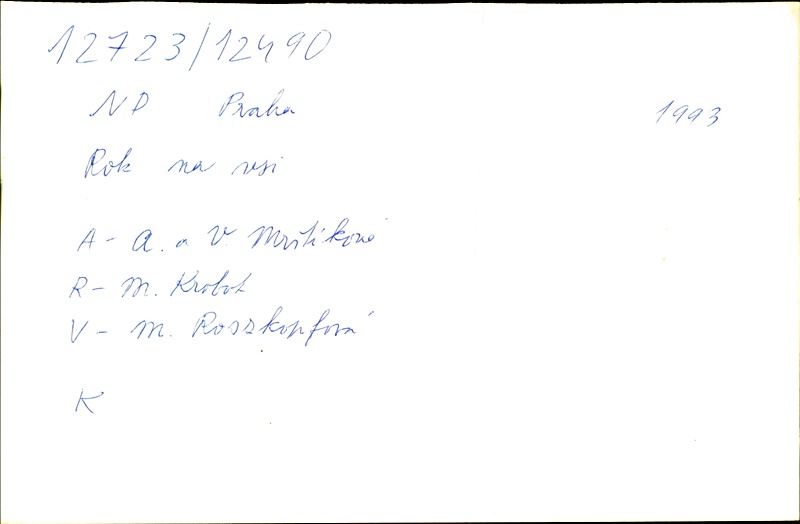 12723/12490
ND Praha 1993
Rok na vsi
A - A. a V. Mrštíkové
R - M. Krobot
V - M. Roszkopfová
K